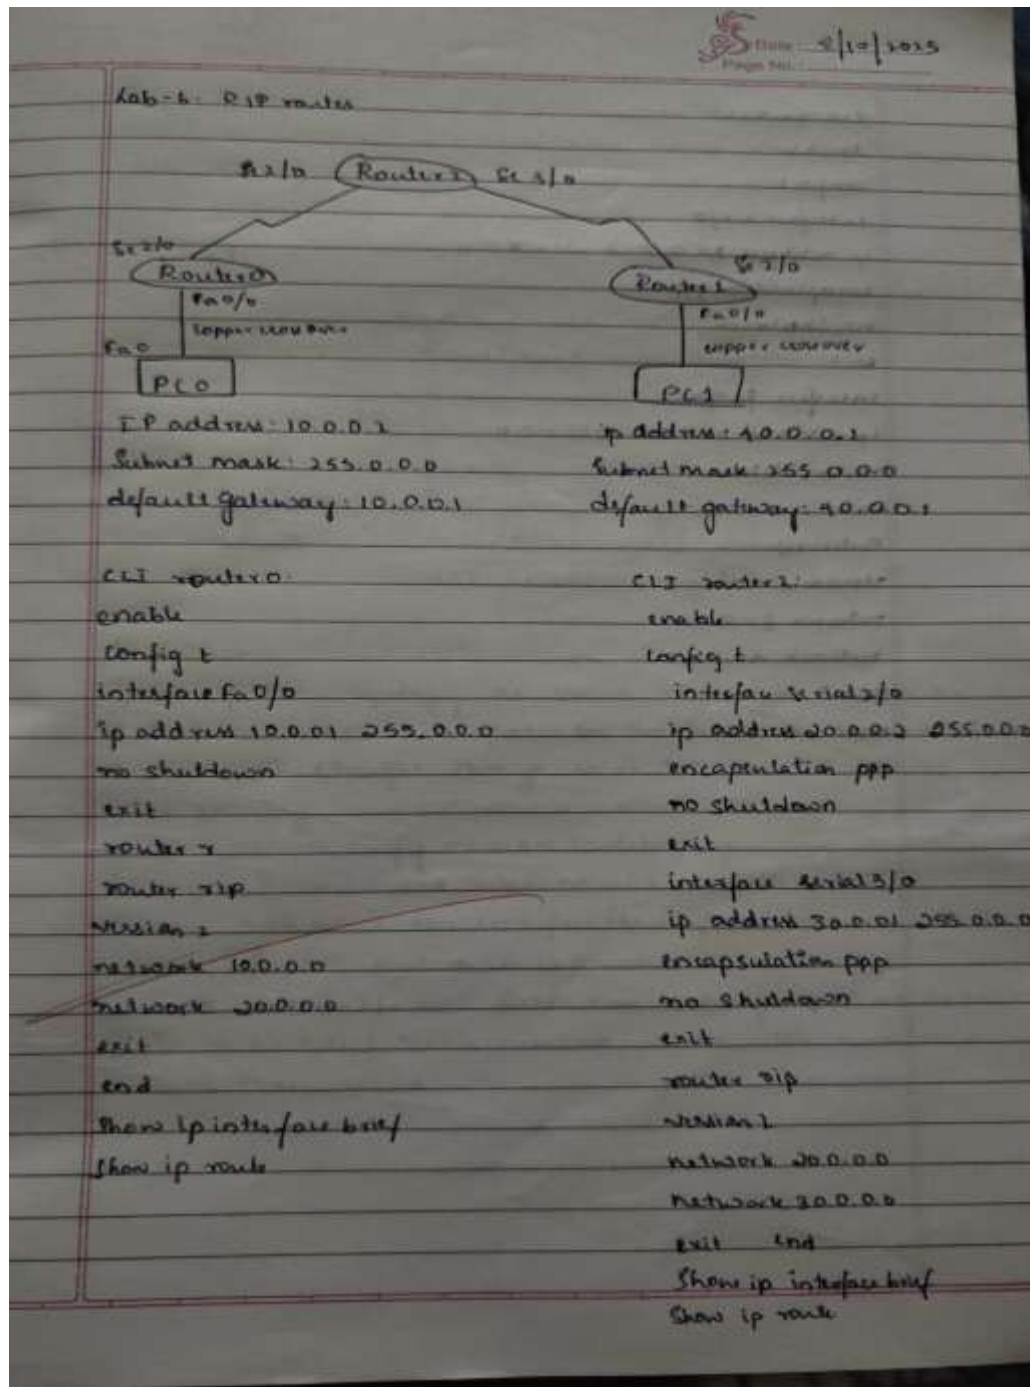 Date: 8/10/2025
Page No.:
Lab-6: RIP routes
Se 2/0 Router2 Se 3/0
Se 2/0
Router0
Fa0/0
copper crossover
Fa0
PC0
Se 2/0
Router1
Fa0/0
copper crossover
PC1
IP address: 10.0.0.2
Subnet mask: 255.0.0.0
default gateway: 10.0.0.1
ip address: 40.0.0.2
Subnet mask: 255.0.0.0
default gateway: 40.0.0.1
CLI router0:
enable
config t
interface Fa0/0
ip address 10.0.01 255.0.0.0
no shutdown
exit
router r
router rip
version 2
network 10.0.0.0
network 20.0.0.0
exit
end
Show ip interface brief
Show ip route
CLI router2:
enable
config t
interface serial2/0
ip address 20.0.0.2 255.0.0.0
encapsulation ppp
no shutdown
exit
interface serial3/0
ip address 30.0.01 255.0.0.0
encapsulation ppp
no shutdown
exit
router rip
version 2
network 20.0.0.0
network 30.0.0.0
exit end
Show ip interface brief
Show ip route